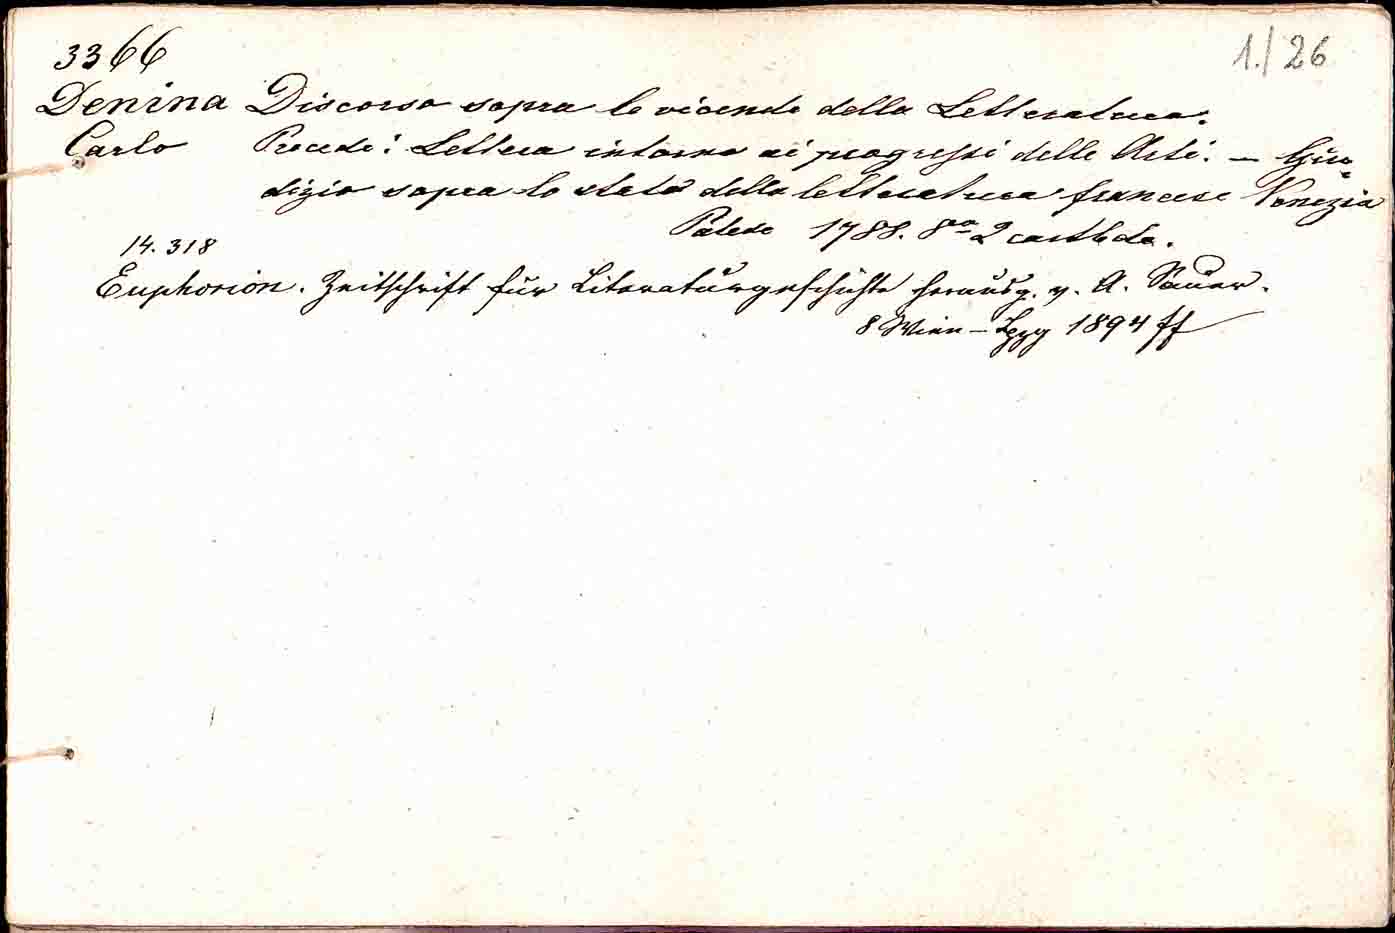 1./26
3366
Denina Discorso sopra le vicende della Letteratura.
Carlo Precede: Lettera intorno ai progressi delle Arti. — Giu=
dizio sopra lo stato della letteratura francese Venezia
Palese 1788. 8vo 2 cart.
14.318
Euphorion. Zeitschrift für Literaturgeschichte herausg. v. A. Sauer.
8 Wien – Lpzg 1894 ff